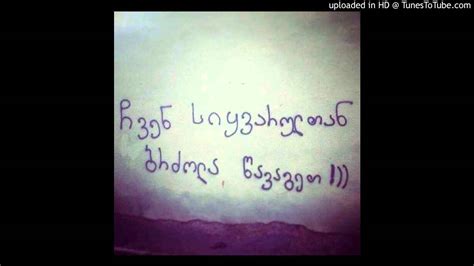 uploaded in HD @ TunesToTube.com
ჩვენ სიყვარულთან
ბრძოლა წავაგეთ!)))